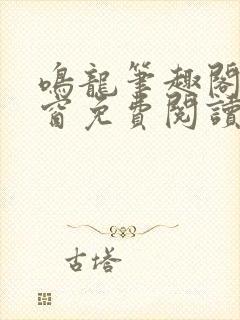 鳴龍筆趣閣
窗免費閱讀
古塔